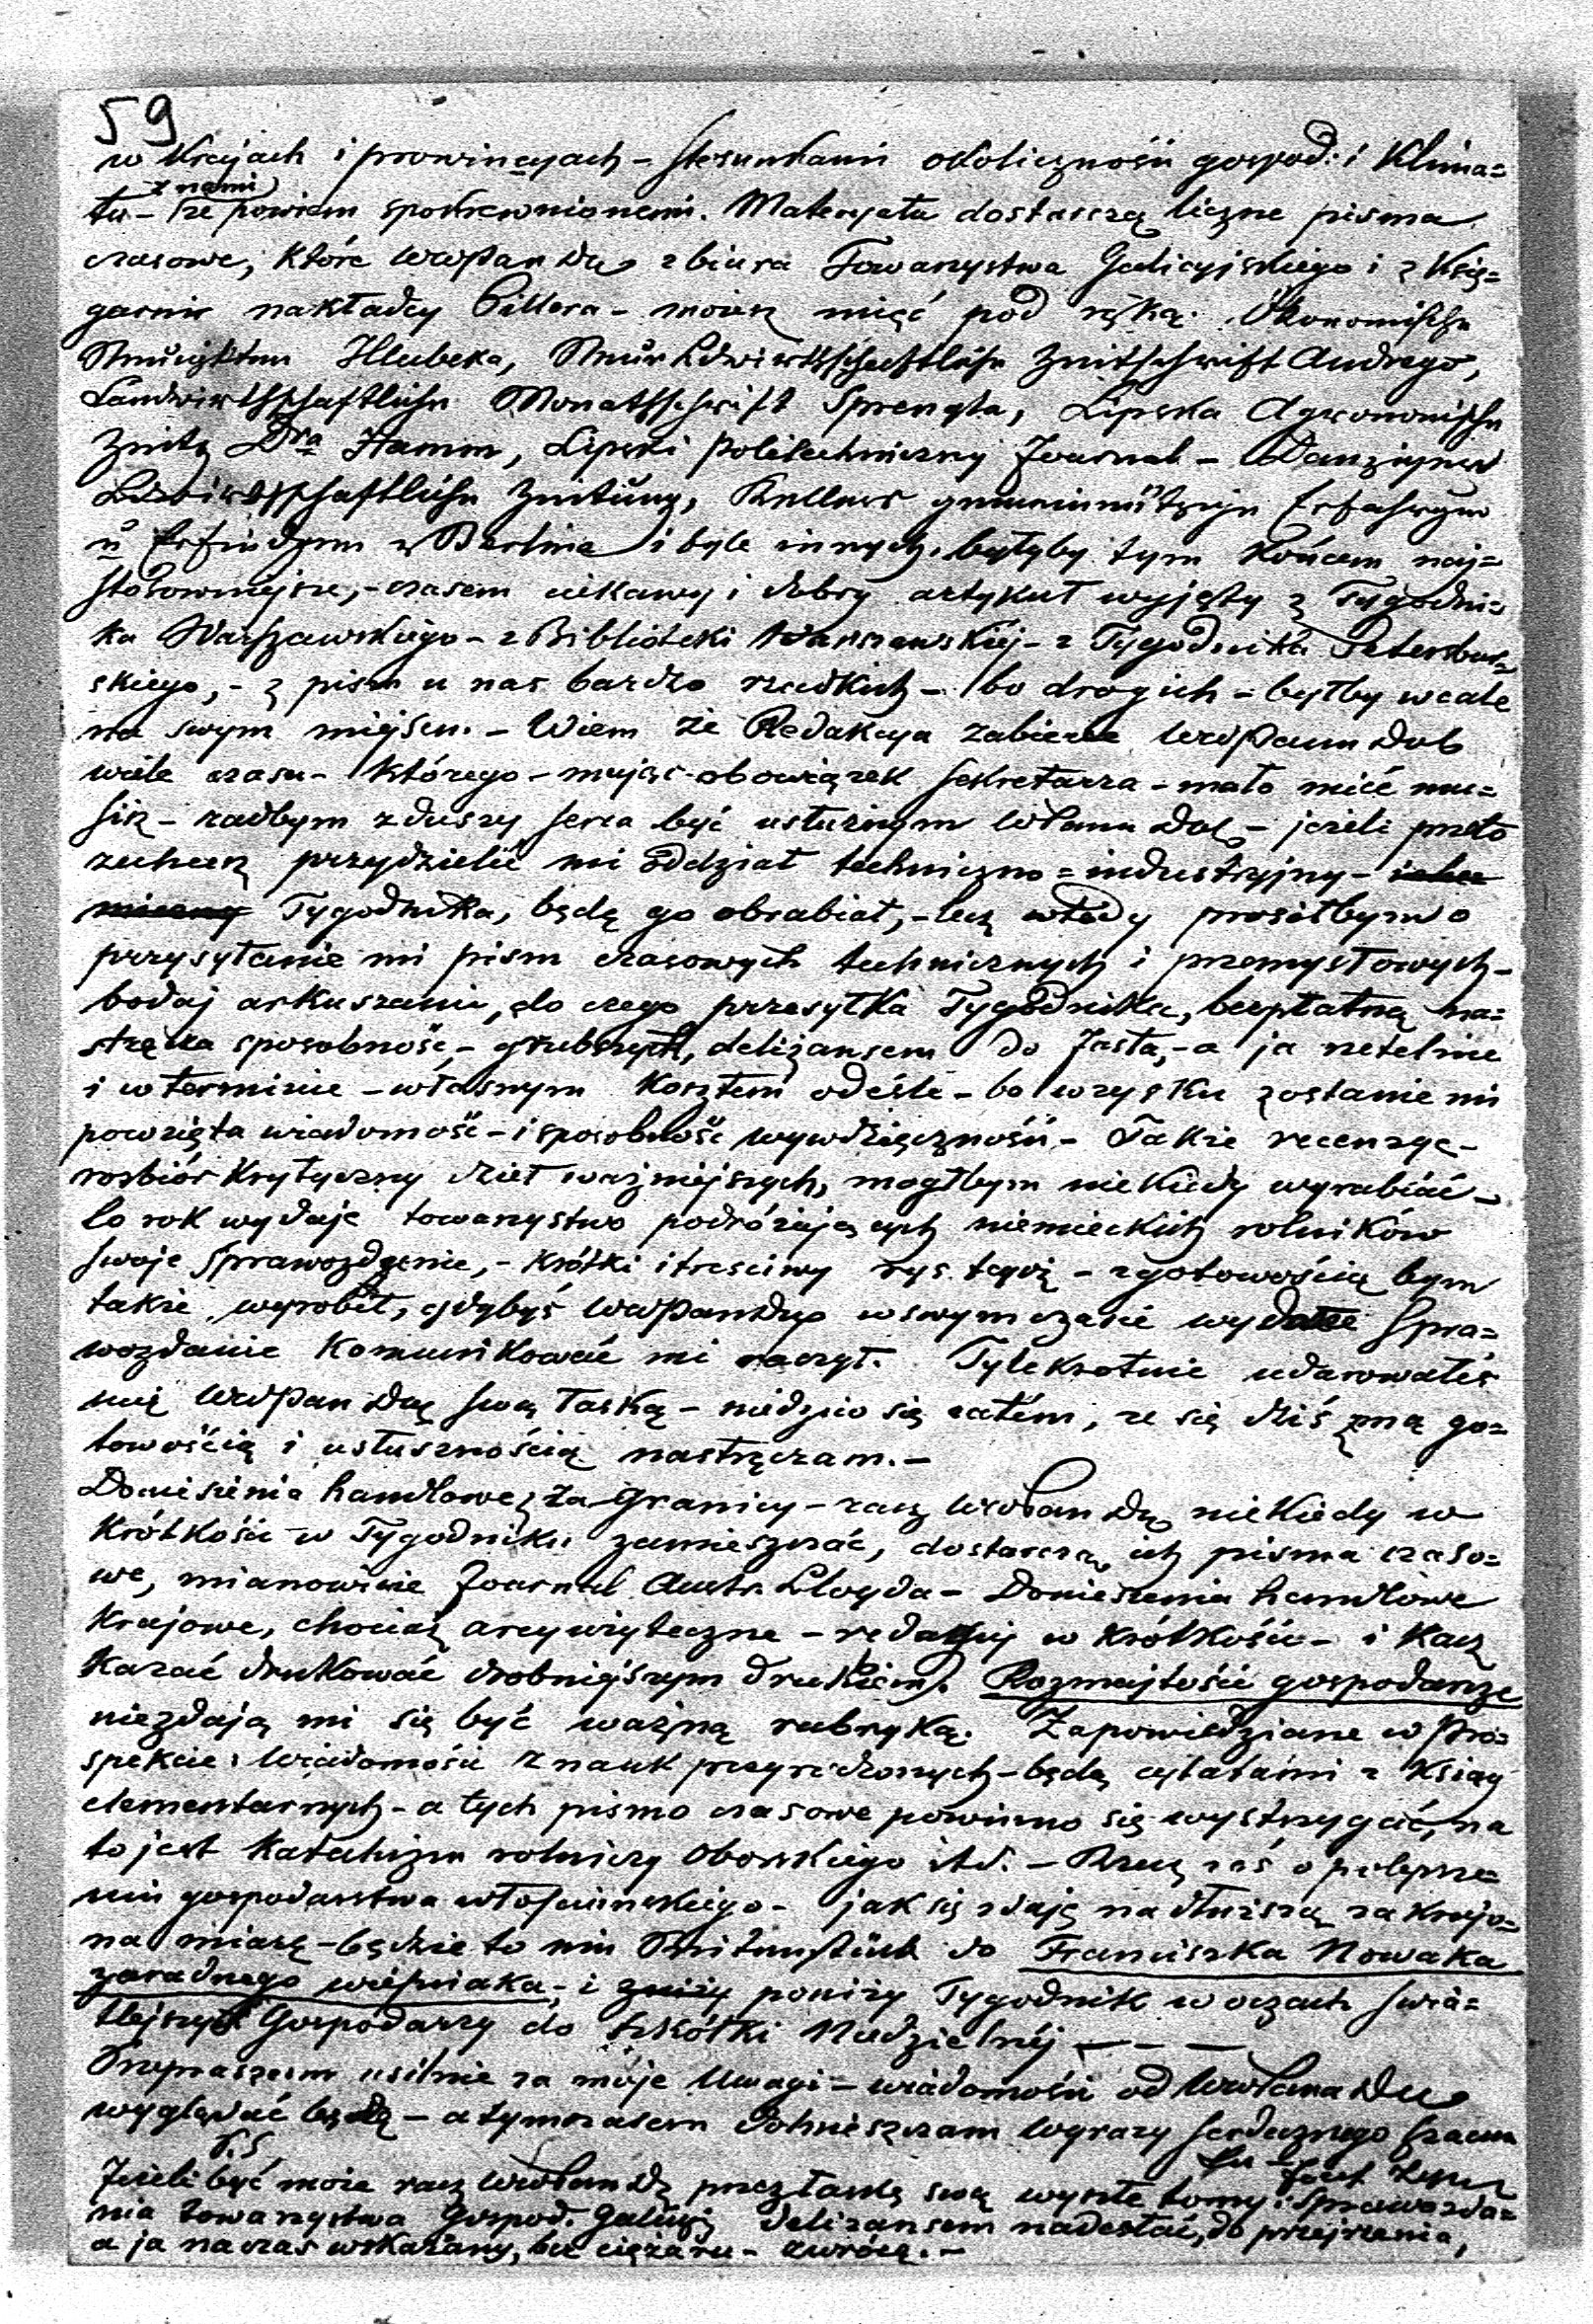 59
w krajach i prowincyach – stosunkami okoliczności gospod: i klima=
z nami
tu – że powiem spokrewnionemi. Materyału dostarczą liczne pisma
czasowe, które WWPan Du z biura Towarzystwa Galicyjskiego i z Księ=
garni nakładcy Pillera – możesz mieć pod ręką. Ökonomische
Neuigkeiten Hlubeka, Neue Ldwirthschaftliche Zeitschrift Andrego,
Landwirthschaftliche Monatsschrift Sprengla, Lipska Agronomische
Zeitg Dra Hamm, Lipski politechniczny Journal –
Ldwirthschaftliche Zeitung, gemeinnützige Erfahrgen
u Erfindgen z Berlina i byle innych, byłyby tym końcem naj=
stosowniejsze, – czasem ciekawy i dobry artykuł wyjęty z Tygodni=
ka Warszawskiego – z Biblioteki Warszawskiéj – z Tygodnika Petersbur=
skiego, – z pism u nas bardzo rzadkich – bo drogich – byłby wcale
na swym miejscu. – Wiem że Redakcya zabierze WWPanu Dob
wiele czasu – którego – mając obowiązek sekretarza – mało mieć mu=
sisz – radbym z duszy serca być usłużnym WPanu Dob – jeżeli przeto
zechcesz przydzielić mi oddział techniczno=industryjny – i che
miczny Tygodnika, będę go obrabiał, – lecz wtedy prosiłbym o
przysyłanie mi pism czasowych technicznych i przemysłowych –
bodaj arkuszami, do czego przesyłka Tygodnika, bezpłatną na=
stręcza sposobność, – grubszych, deliżansem do Jasła, – a ja rzetelnie
i w terminie – własnym kosztem odeślę – bo w zysku zostanie mi
powzięta wiadomość – i sposobność wywdzięczności – Także recenzye –
rozbiór krytyczny dzieł ważniejszych, mogłbym niekiedy wyrabiać –
Co rok wydaje towarzystwo podróżujących niemieckich rolników
swoje sprawozdanie, – krótki i treściwy rys tegoż – z gotowością bym
także wyrobił, gdybyś WWPanDob w swym czasie wydane spra=
wozdanie komunikować mi raczył. Tylekrotnie udarowałeś
mię WWPan Dob swą łaską – niedziw się zatém, że się dziś z mą go=
towością i usłużnością nastręczam. –
Doniesienia handlowe z za Granicy – racz WWPan Dob niekiedy w
krótkości w Tygodniku zamieszczać, dostarczą ich pisma czaso=
we, mianowicie Journal Austr. Lloyda – Doniesienia handlowe
krajowe, chociaż arcyużyteczne – redaguj w krótkości – i każ
kazać drukować drobniejszym drukiem. Rozmajtości gospodarze
niezdają mi się być ważną rubryką. Zapowiedziane w Pro=
spekcie Wiadomości z nauk przyrodzonych – będą cytatami z Ksiąg
elementarnych – a tych pismo czasowe powinno się wystrzygać, na
to jest Katechizm rolniczy Oborskiego itd. – Rzecz zaś o polepsze=
niu gospodarstwa włościańskiego – jak się zdaje na dłuższą zakrojo=
na miarę – będzie to ein Seitenstück do Franciszka Nowaka
zaradnego wieśniaka, – i zniży poniży Tygodnik w oczach świa=
tlejszych Gospodarzy do Szkółki Niedzielnéj – – –
Przepraszam usilnie za moje Uwagi – wiadomości od WWPana Dob
wyglądać będę – a tymczasem dołnieszczam wyrazy serdecznego szacun
P.S
Jeżeli być może racz WWPan Db przez łaskę swą wyszłe tomy: sprawozda=
nia towarzystwa Gospod. Galicyj: deliżansem nadesłać, do przejrzenia,
a ja na czas wskazany, bez ciężaru – zwrócę. –